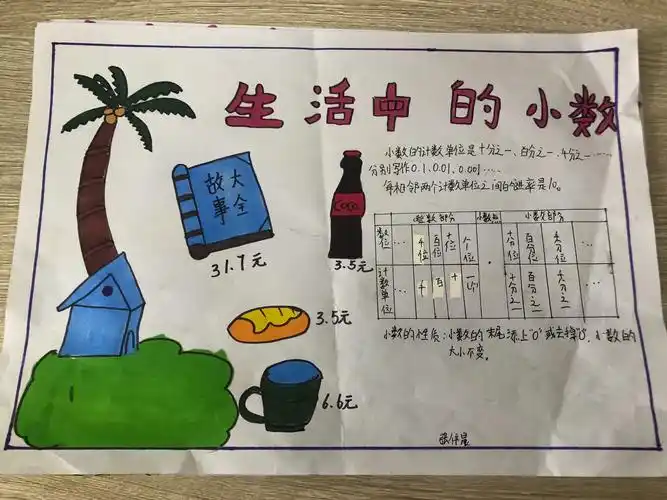 生活中的小数
小数的计数单位是十分之一、百分之一、千分之一……
分别写作0.1、0.01、0.001……
每相邻两个计数单位之间的进率是10。
故事大全
31.7元
Coca
3.5元
3.5元
6.6元
整数部分 小数点 小数部分
数位 … 千位 百位 十位 个位 . 十分位 百分位 千分位 …
计数单位 … 千 百 十 一(个) 十分之一 百分之一 千分之一 …
小数的性质：小数的末尾添上"0"或去掉"0"，小数的
大小不变。